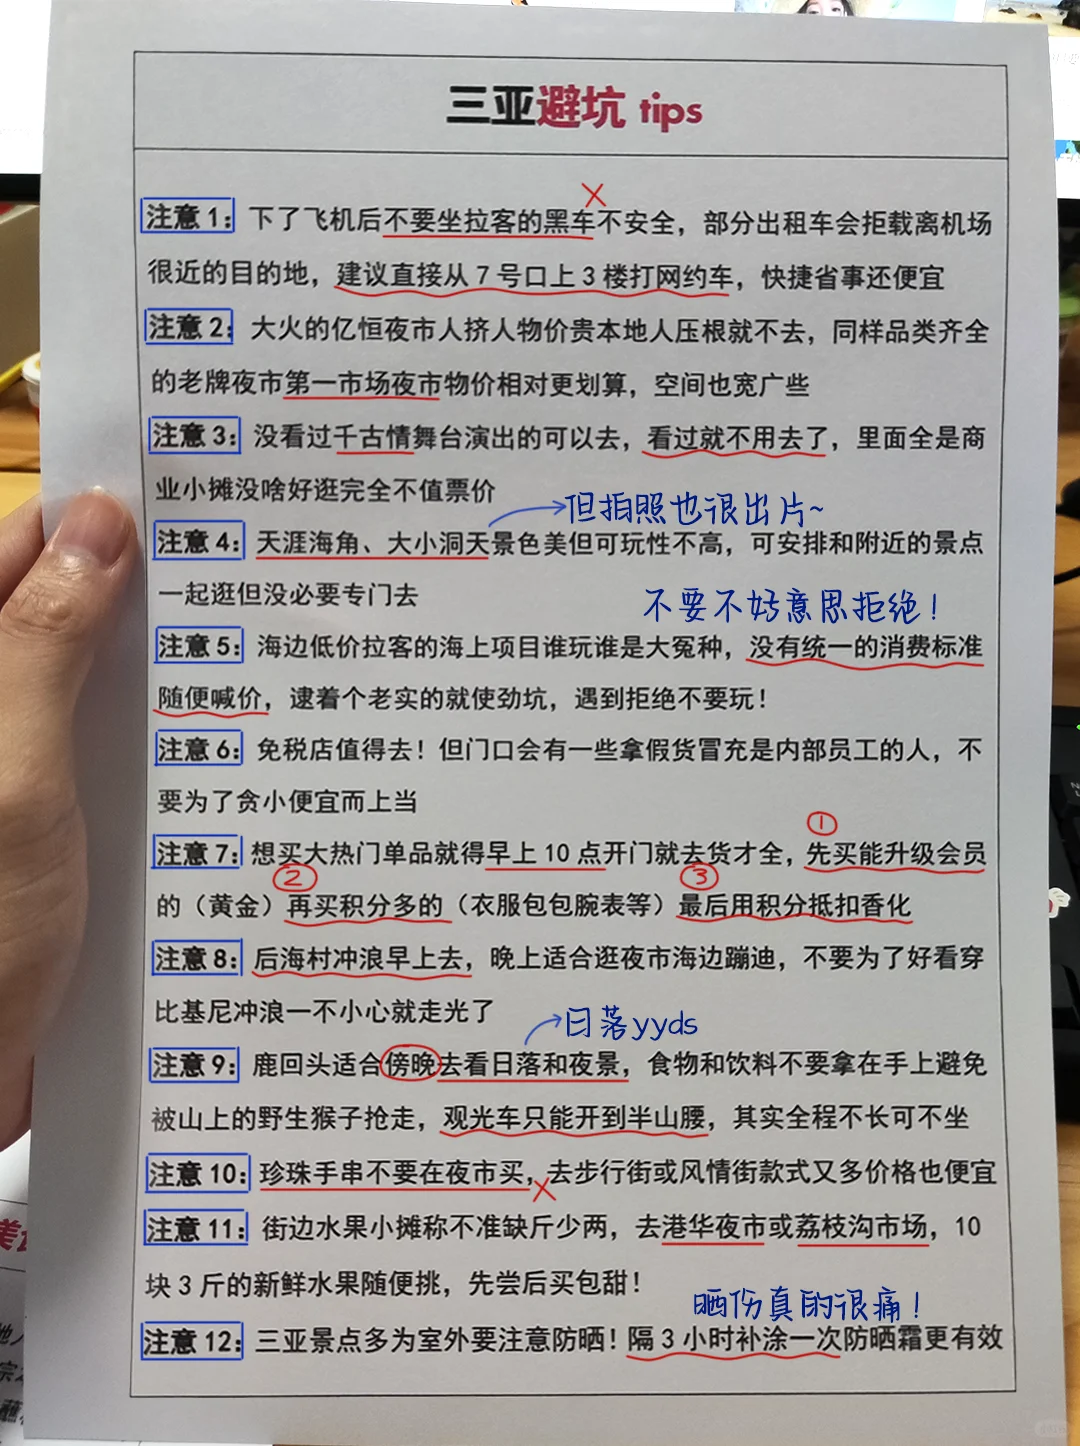 三亚避坑 tips
注意 1：下了飞机后不要坐拉客的黑车不安全，部分出租车会拒载离机场
很近的目的地，建议直接从 7 号口上 3 楼打网约车，快捷省事还便宜
注意 2：大火的亿恒夜市人挤人物价贵本地人压根就不去，同样品类齐全
的老牌夜市第一市场夜市物价相对更划算，空间也宽广些
注意 3：没看过千古情舞台演出的可以去，看过就不用去了，里面全是商
业小摊没啥好逛完全不值票价
但拍照也很出片~
注意 4：天涯海角、大小洞天景色美但可玩性不高，可安排和附近的景点
一起逛但没必要专门去
不要不好意思拒绝！
注意 5：海边低价拉客的海上项目谁玩谁是大冤种，没有统一的消费标准
随便喊价，逮着个老实的就使劲坑，遇到拒绝不要玩！
注意 6：免税店值得去！但门口会有一些拿假货冒充是内部员工的人，不
要为了贪小便宜而上当
①
注意 7：想买大热门单品就得早上 10 点开门就去货才全，先买能升级会员
② ③
的（黄金）再买积分多的（衣服包包腕表等）最后用积分抵扣香化
注意 8：后海村冲浪早上去，晚上适合逛夜市海边蹦迪，不要为了好看穿
比基尼冲浪一不小心就走光了
日落yyds
注意 9：鹿回头适合傍晚去看日落和夜景，食物和饮料不要拿在手上避免
被山上的野生猴子抢走，观光车只能开到半山腰，其实全程不长可不坐
注意 10：珍珠手串不要在夜市买，去步行街或风情街款式又多价格也便宜
注意 11：街边水果小摊称不准缺斤少两，去港华夜市或荔枝沟市场，10
块 3 斤的新鲜水果随便挑，先尝后买包甜！
晒伤真的很痛！
注意 12：三亚景点多为室外要注意防晒！隔 3 小时补涂一次防晒霜更有效